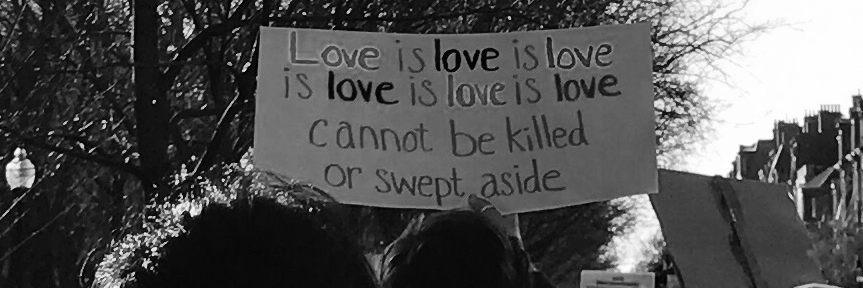 Love is love is love
is love is love is love
cannot be killed
or swept aside